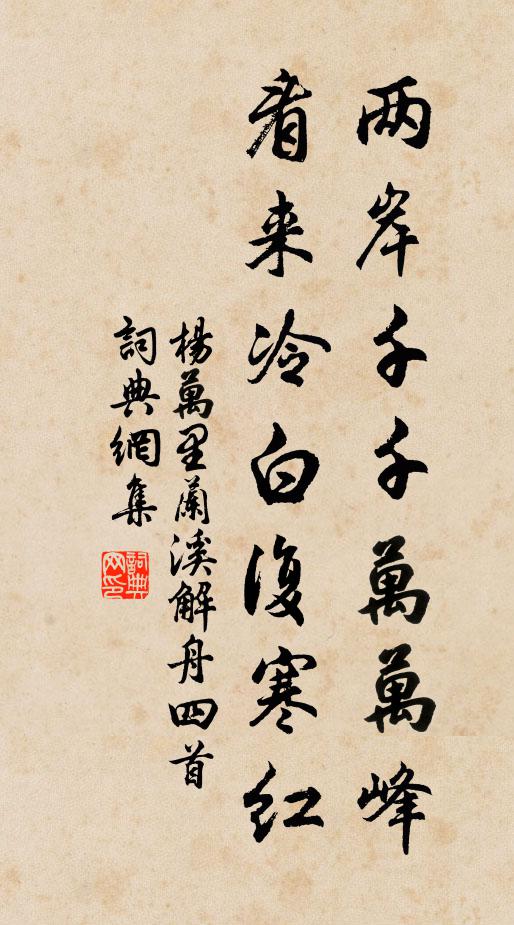 两岸千千萬萬峰
看来冷白復寒红
楊萬里蘭溪解舟四首
詞典網集
詞典网印